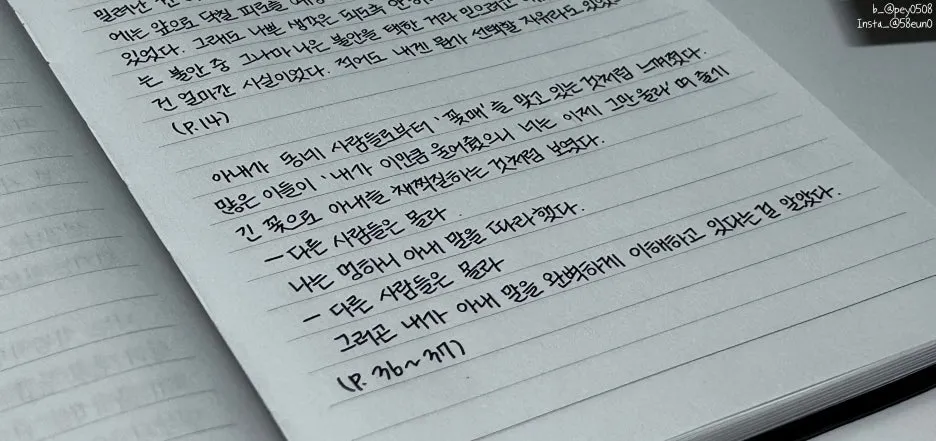 b_@pey0508
Insta_@58eun0
밀려난
에는 앞으로 닥칠 피로를
있었다. 그래도 나쁜 생각은 되도록 안
는 불안 중 그나마 나은 불안을 택한 거라 믿으려고
건 얼마간 사실이었다. 적어도 내겐 뭔가 선택할 자유라도 있었
(P.14)
아내가 동네 사람들로부터 '꽃매'를 맞고 있는 것처럼 느껴졌다.
많은 이들이 '내가 이만큼 울어줬으니 너는 이제 그만 울라'며 줄기
긴 꽃으로 아내를 채찍질하는 것처럼 보였다.
- 다른 사람들은 몰라.
나는 멍하니 아내 말을 따라 했다.
- 다른 사람들은 몰라
그러곤 내가 아내 말을 완벽하게 이해하고 있다는 걸 알았다.
(P. 36~37)